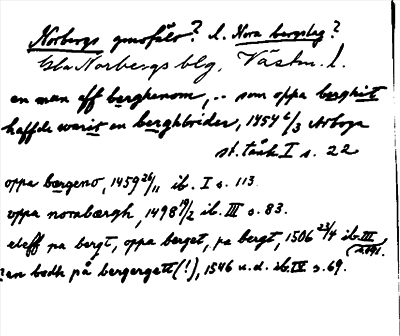 Norbergs gruvfält? l. Nora bergslag?
Gla Norbergs blg, Västm. l.
en man aff berghenom, .. som oppa berghit
haffde warit en berghbrider, 1454 6/3 Arboga
st. tänk I s. 22
oppa bærgeno, 1459 26/11 ib. I s. 113.
oppa norabærgh, 1498 19/2 ib. III s. 83.
eleff pa bergt, oppa berget, pa bergt, 1506 23/4 ib. III
man bodh på bergergett(!), 1546 u.d. ib. IV s. 69.